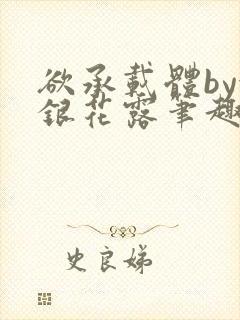 欲承載體by
銀花露筆趣
史良娣